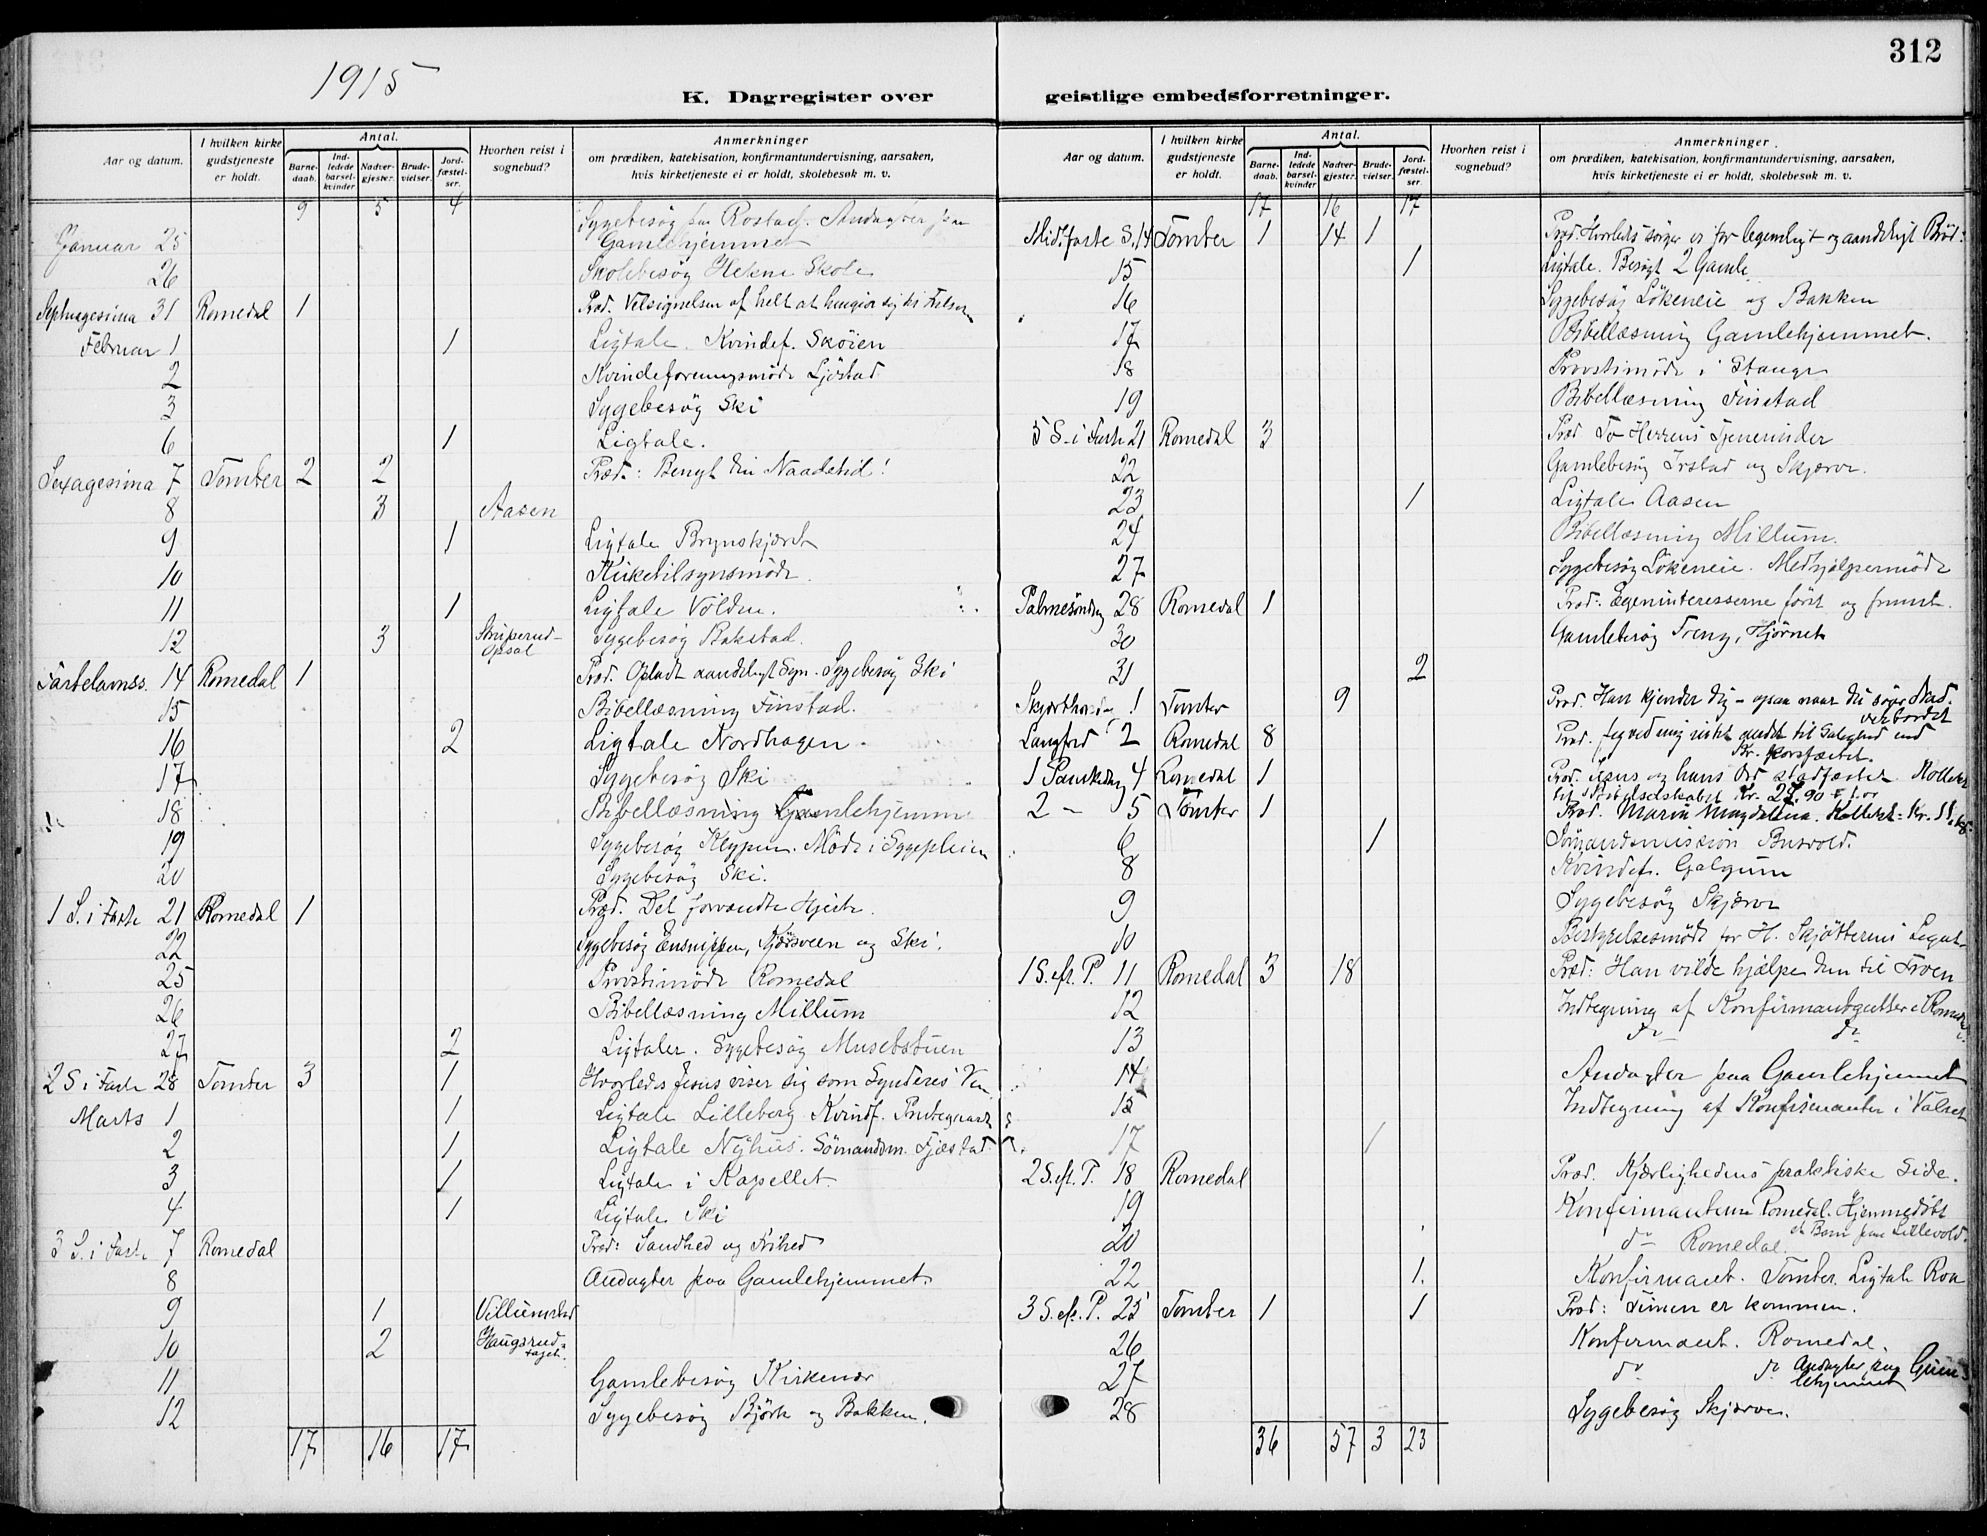 312
1915
K. Dagregister over geistlige embedsforretninger.
Aar og datum.
I hvilken kirke gudstjeneste er holdt.
Antal.
Barnedaab.
Indledede barselkvinder
Nadvergjester.
Brudevielser.
Jordfæstelser.
Hvorhen reist i sognebud?
Anmerkninger
om prædiken, katekisation, konfirmantundervisning, aarsaken,
hvis kirketjeneste ei er holdt, skolebesøk m. v.
9 5 4
Januar 25 Sygebesøg paa Rostad. Andagter paa
Gamlehjemmet
26 Skolebesøg Helene Skole
Septuagesima 31 Romedal 1 Præd. Velsignelsen af helt at hengive sig til Frelseren
Februar 1 1 Ligtale. Kvindef. Skøien
2 Kvindeforeningsmøde Ljøstad
3 Sygebesøg Ski
6 1 Ligtale.
Sexagesima 7 Tomter 2 2 Præd.: Benyt din Naadetid!
8 3 Aasen
9 1 Ligtale Brynskjæret
10 Kirketilsynsmøde.
11 1 Ligtale Volden.
12 3 Struperud-Opsal Sygebesøg Bakstad.
Fastelavnss. 14 Romedal 1 Præd. Opladt aandeligt Syn. Sygebesøg Ski
15 Bibellæsning Finstad.
16 2 Ligtale Nordhagen.
17 Sygebesøg Ski
18 Bibellæsning paa Gamlehjemme
19 Sygebesøg Klypen. Møde i Sygepleien
20 Sygebesøg Ski.
1 S. i Faste 21 Romedal 1 Præd. Det forvandte Hjerte.
22 Sygebesøg Ensnippen, Kjøsveen og Ski.
25 Provstimøde Romedal
26 Bibellæsning Millum
27 2 Ligtaler. Sygebesøg Musebstuen
2 S i Faste 28 Tomter 3 1 Hvorledes Jesus viser sig som Synderes Ven
Marts 1 1 Ligtale Lilleberg. Kvindf.
2 1 Ligtale Nyhus. Sømandsm. Fjæstad
3 1 Ligtale i Kapellet.
4 1 Ligtale Ski
3 S. i Faste 7 Romedal Præd: Sandhed og Frihed
8 Andagter paa Gamlehjemmet.
9 1 Villumstad
10 2 Haugsrudtaget.
11 Gamlebesøg Kirkenær
12 Sygebesøg Bjørk og Bakken.
17 16 17
Aar og datum.
I hvilken kirke gudstjeneste er holdt.
Antal.
Barnedaab.
Indledede barselkvinder
Nadvergjester.
Brudevielser.
Jordfæstelser.
Hvorhen reist i sognebud?
Anmerkninger.
om prædiken, katekisation, konfirmantundervisning, aarsaken,
hvis kirketjeneste ei er holdt, skolebesøk m. v.
17 16 17
Midfaste S. 14 Tomter 1 14 1 Præd. Hvorledes sørger vi for legemligt og aandeligt Brød?
15 1 Ligtale. Besøgt 2 Gamle
16 Sygebesøg Løkeneie og Bakken
17 Bibellæsning Gamlehjemmet.
18 Provstimøde i Stange
19 Bibellæsning Finstad
5 S. i Faste 21 Romedal 3 Præd To Herrens Tjenerinder
22 Gamlebesøg Irstad og Skjærve.
23 1 Ligtale Aasen
24 Bibellæsning Millum.
27 Sygebesøg Løkeneie. Medhjælpermøde
Palmesøndag 28 Romedal 1 Præd: Egeninteresserne først og fremst.
30 Gamlebesøg Treng, Hjørnet
31 2
Skjærthorsdag 1 Tomter 9 Præd. Han kjender dig - ogsaa naar du søger Nadverbordet
Langfred 2 Romedal 8 Præd. Jeg ved mig intet andet til Salighed end Kr. korsfæstet.
1 Paaskedag 4 Romedal 1 Præd. Jesus og hans Ord stadfæstet. Kollekt
til Bibelselskabet Kr. 27.90
2 - 5 Tomter 1 Præd. Maria Magdalena. Kollekt: Kr. 11.
6 1 Sømandsmission Busvold.
8 Kvindef. Galgum
9 Sygebesøg Skjærve
10 Bestyrelsesmøde for H. Skjøtterens Legat
1 S. eft. P. 11 Romedal 3 18 Præd: Han vilde hjælpe dem til Troen
12 Indtegning af Konfirmantgutter i Romedal
13 do do
14 Andagter paa Gamlehjemmet
15 Indtegning af Konfirmanter i Valset
17 1
2 S. eft. P. 18 Romedal Præd. Kjærlighedens praktiske Side.
19 Konfirmanterne Romedal. Hjemmedøbt
et Barn paa Lillevold.
20 do Romedal.
22 1. Konfirmant. Tomter. Ligtale Roa
3 S. eft. P. 25 Tomter 1 1 Præd: Timen er kommen.
26 Konfirmant. Romedal.
27 do do Andagter paa Gamlehjemmet
28 Sygebesøg Skjærve.
36 57 3 23